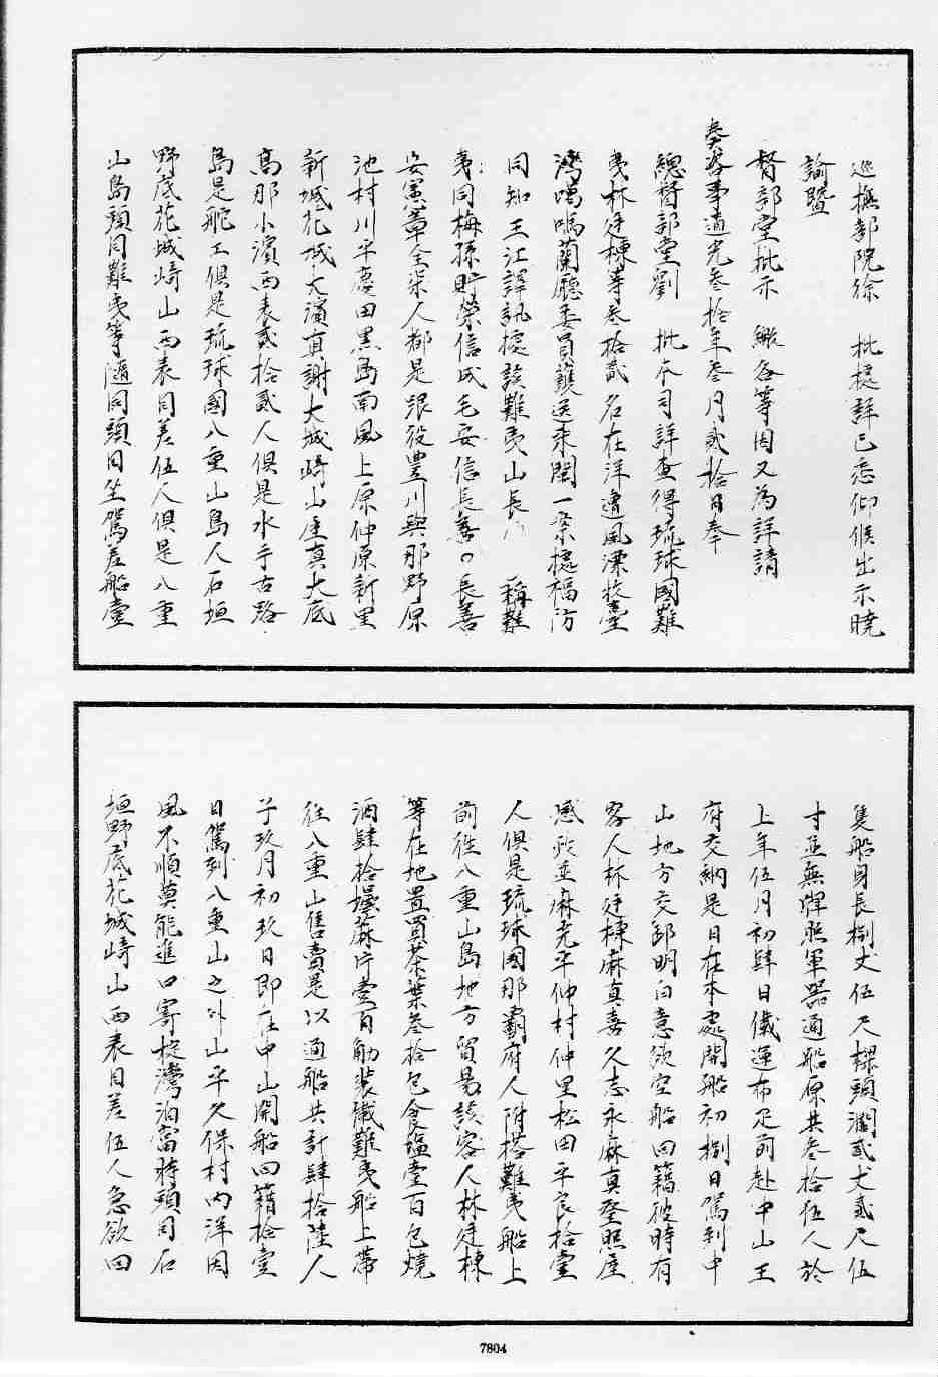 巡撫部院徐　批據詳已悉仰候出示曉
諭暨
督部堂批示　繳各等因又為詳請
奏咨事道光叁拾年叁月貳拾日奉
總督部堂劉　批本司詳查得琉球國難
夷林廷棟等叁拾貳名在洋遭風漂收臺
灣噶嗎蘭廳委員護送來閩一案據福防
同知王江譯訊據該難夷山長　稱難
夷同梅孫貯榮信成毛安信長善　長善
安憲章全柒人都是跟役豊川與那野原
池村川平慶田黑島南風上原仲原新里
新城花城大濱真謝大城崎山座真大底
高那小濱西表貳拾貳人俱是水手古路
島是舵工俱是琉球國八重山島人石垣
野底花城崎山西表同差伍人俱是八重
山島頭目難夷等隨同頭目坐駕差船壹
隻船身長捌丈伍尺樑頭濶貳丈貳尺伍
寸並無牌照軍器通船原共叁拾伍人於
上年伍月初肆日儎運布疋前赴中山王
府交納是日在本處開船初捌日駕到中
山地方交卸明白意欲空船回籍彼時有
客人林廷棟麻真喜久志永麻真登照屋
感政並麻克平仲村仲里松田平良拾壹
人俱是琉球國那霸府人附搭難夷船上
前往八重山島地方貿易該客人林廷棟
等在地置買茶葉叁拾包食塩壹百包燒
酒肆拾壜蔴片壹百觔裝儎難夷船上帶
往八重山售賣是以通船共計肆拾陸人
于玖月初玖日即在中山開船回籍拾壹
日駕到八重山之外山平久保村內洋因
風不順莫能進口寄椗灣泊當時頭目石
垣野底花城崎山西表目差伍人急欲回
7804